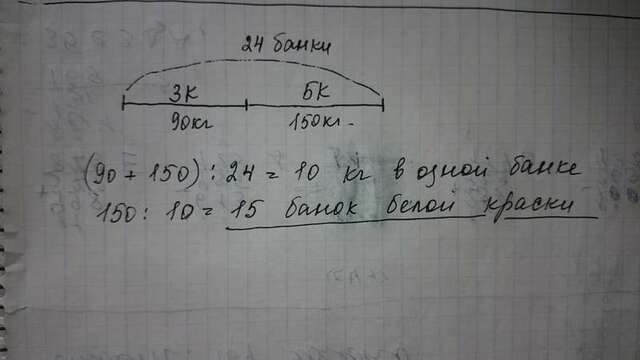 24 банки
3К БК
90кг 150кг.
(90 + 150) : 24 = 10 кг в одной банке
150 : 10 = 15 банок белой краски